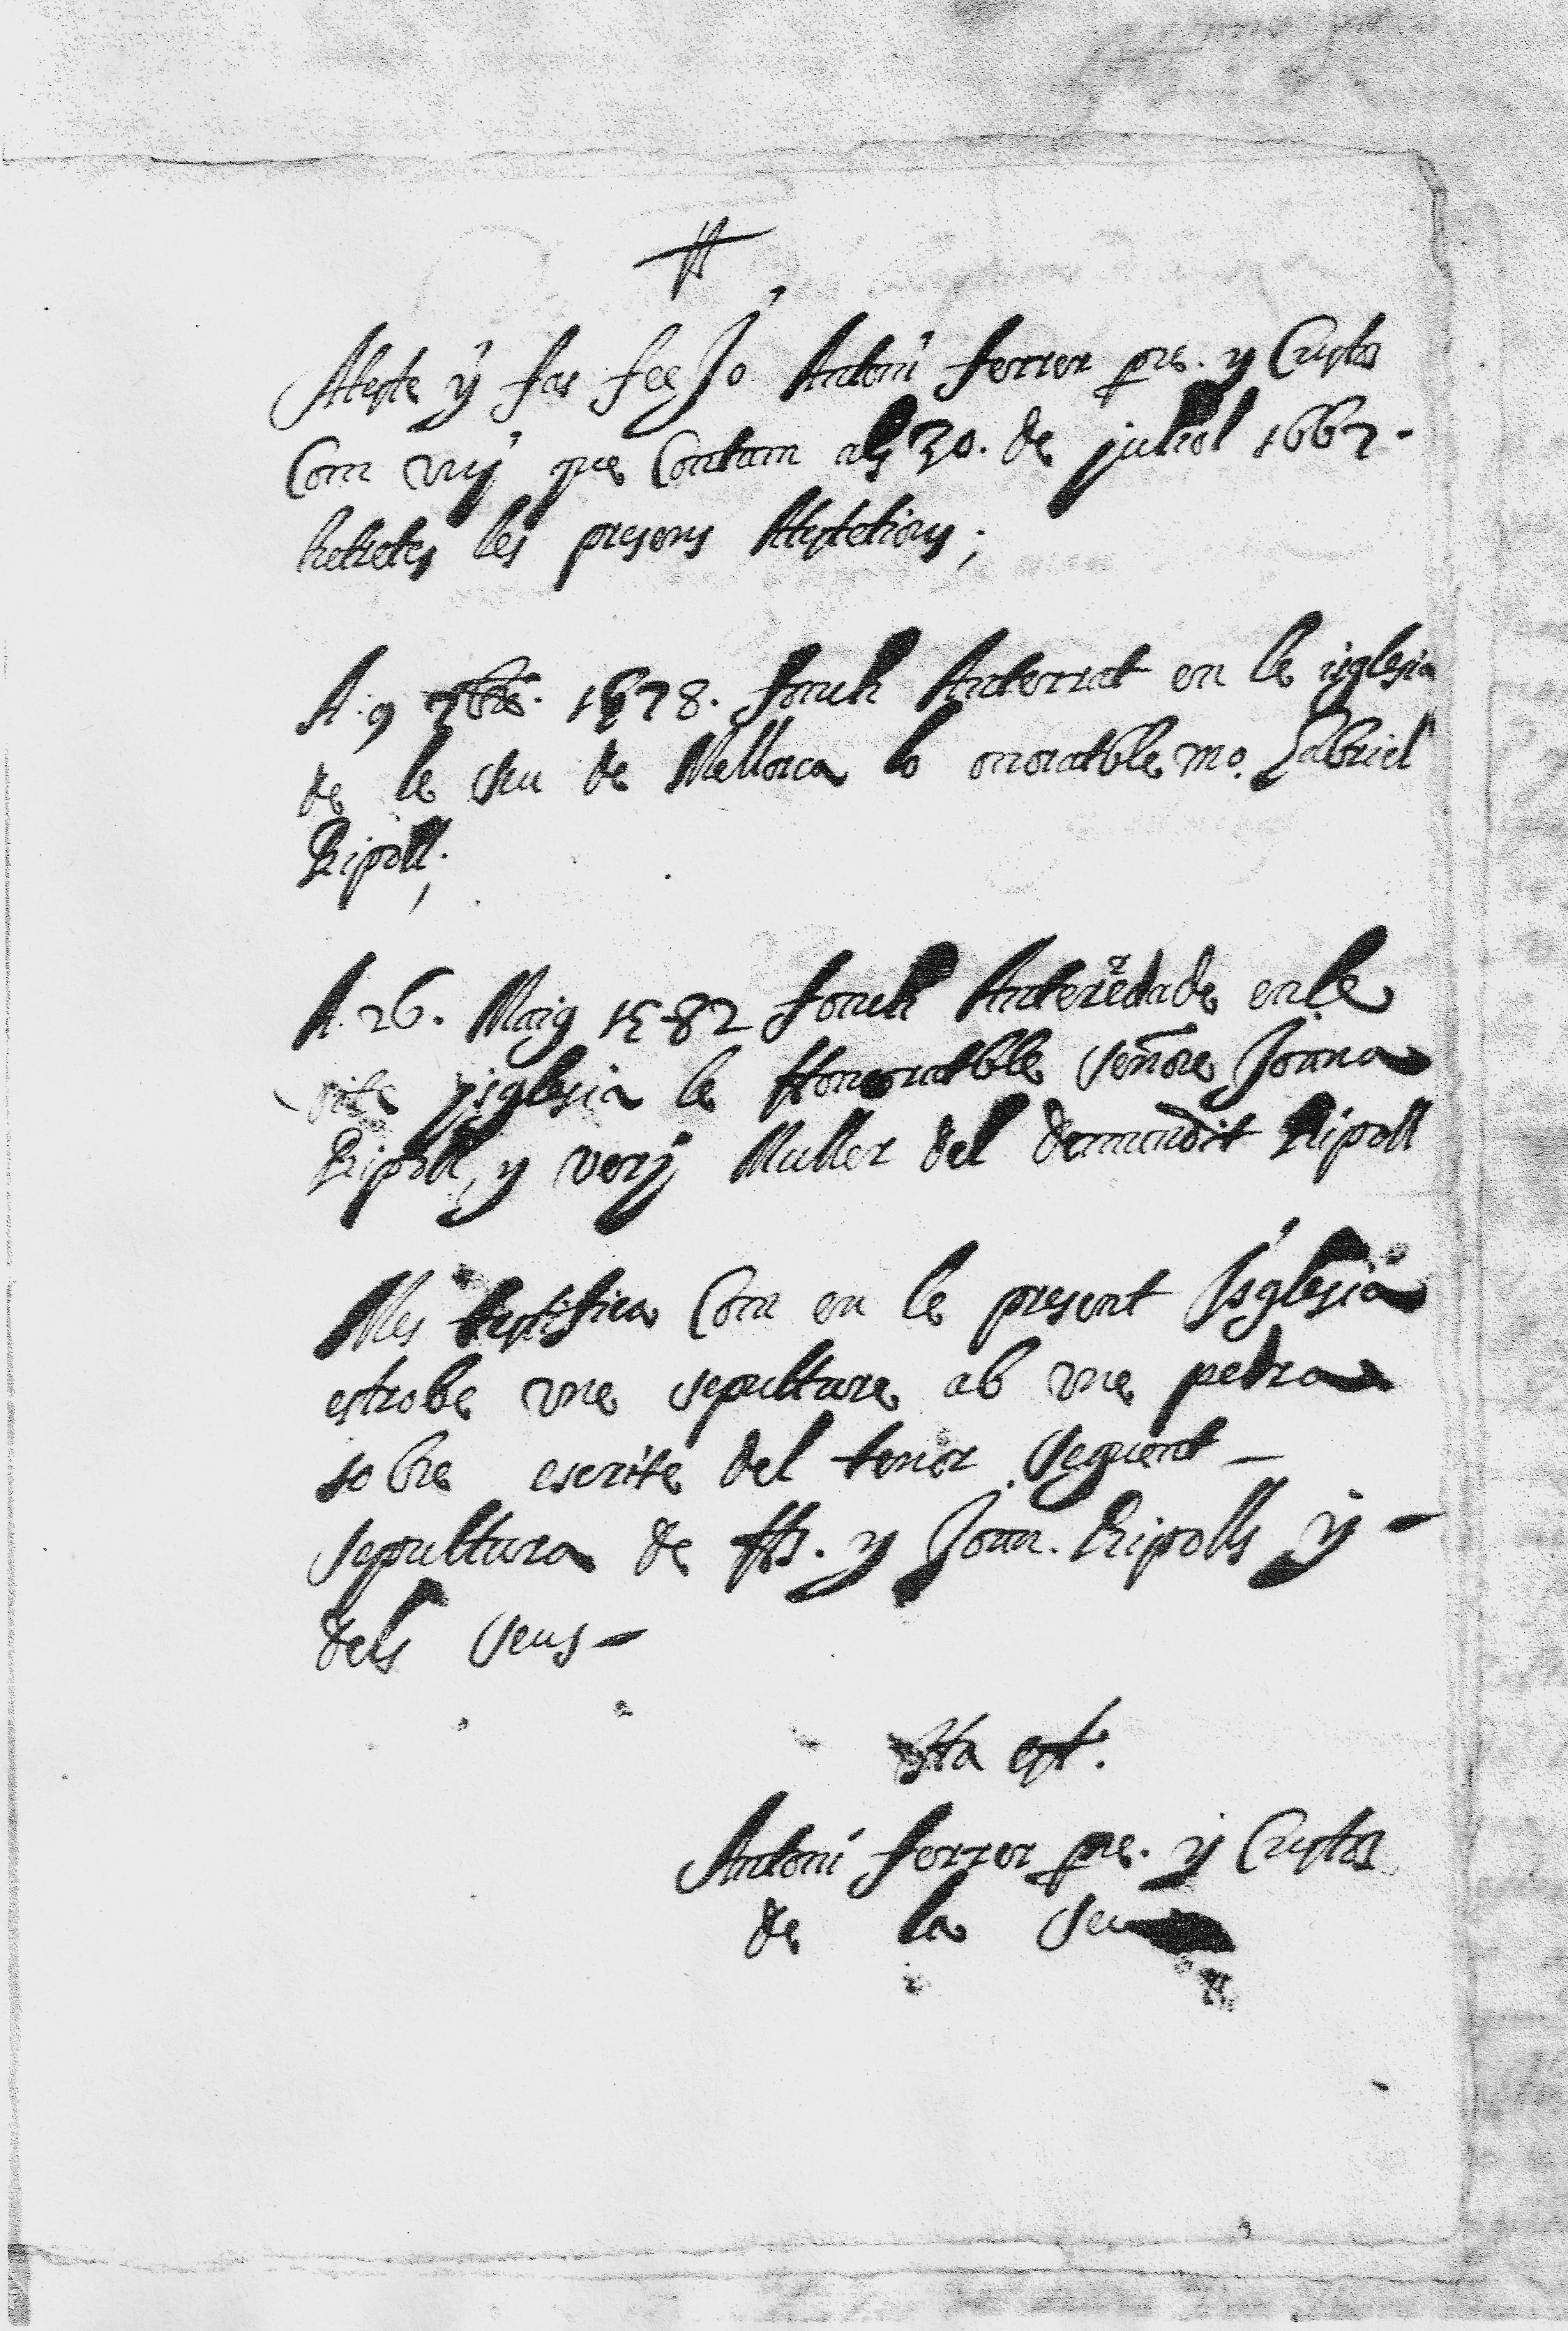 Ateste y fas fee Jo Antoni ferrer pre. y Custos
Com vuy que Contam als 30. de juliol 1667.
he tretes les presens Atestetions;
A. 9 7bre. 1578. fonch Anterrat en le isglesia
de le Seu de Mallorca lo onorable mo. Gabriel
Ripoll;
A. 26. Maig 1582 fonch Anterrade en le
dite yglesia le Honorable señore Joana
Ripoll, y verj Muller del demundit Ripoll
Mes testifica Com en le present Isglesia
estrobe vne sepulture ab vne pedra
sobre escrite del tenor seguent -
sepultura de y Joan. Ripolls y -
dels Seus -
Ita est.
Antoni ferrer pre. y Custos
de la Seu